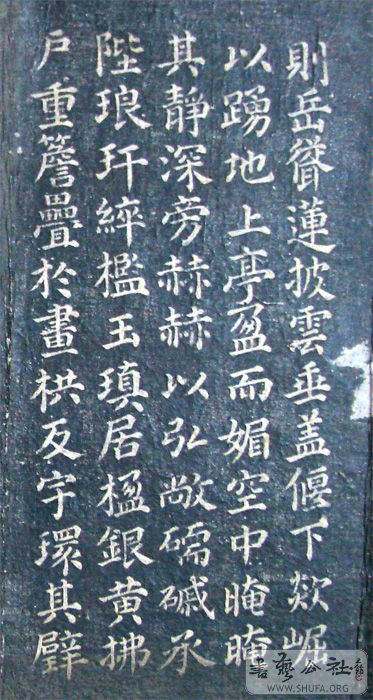 則岳聳蓮披雲垂盖偃下欻崛
以踴地上亭盈而媚空中晻晻
其靜深旁赫赫以弘敞礝磩承
陛琅玕綷檻玉瑱居楹銀黃拂
户重簷疊於畫栱反宇環其璧
書藝公社
WWW.SHUFA.ORG